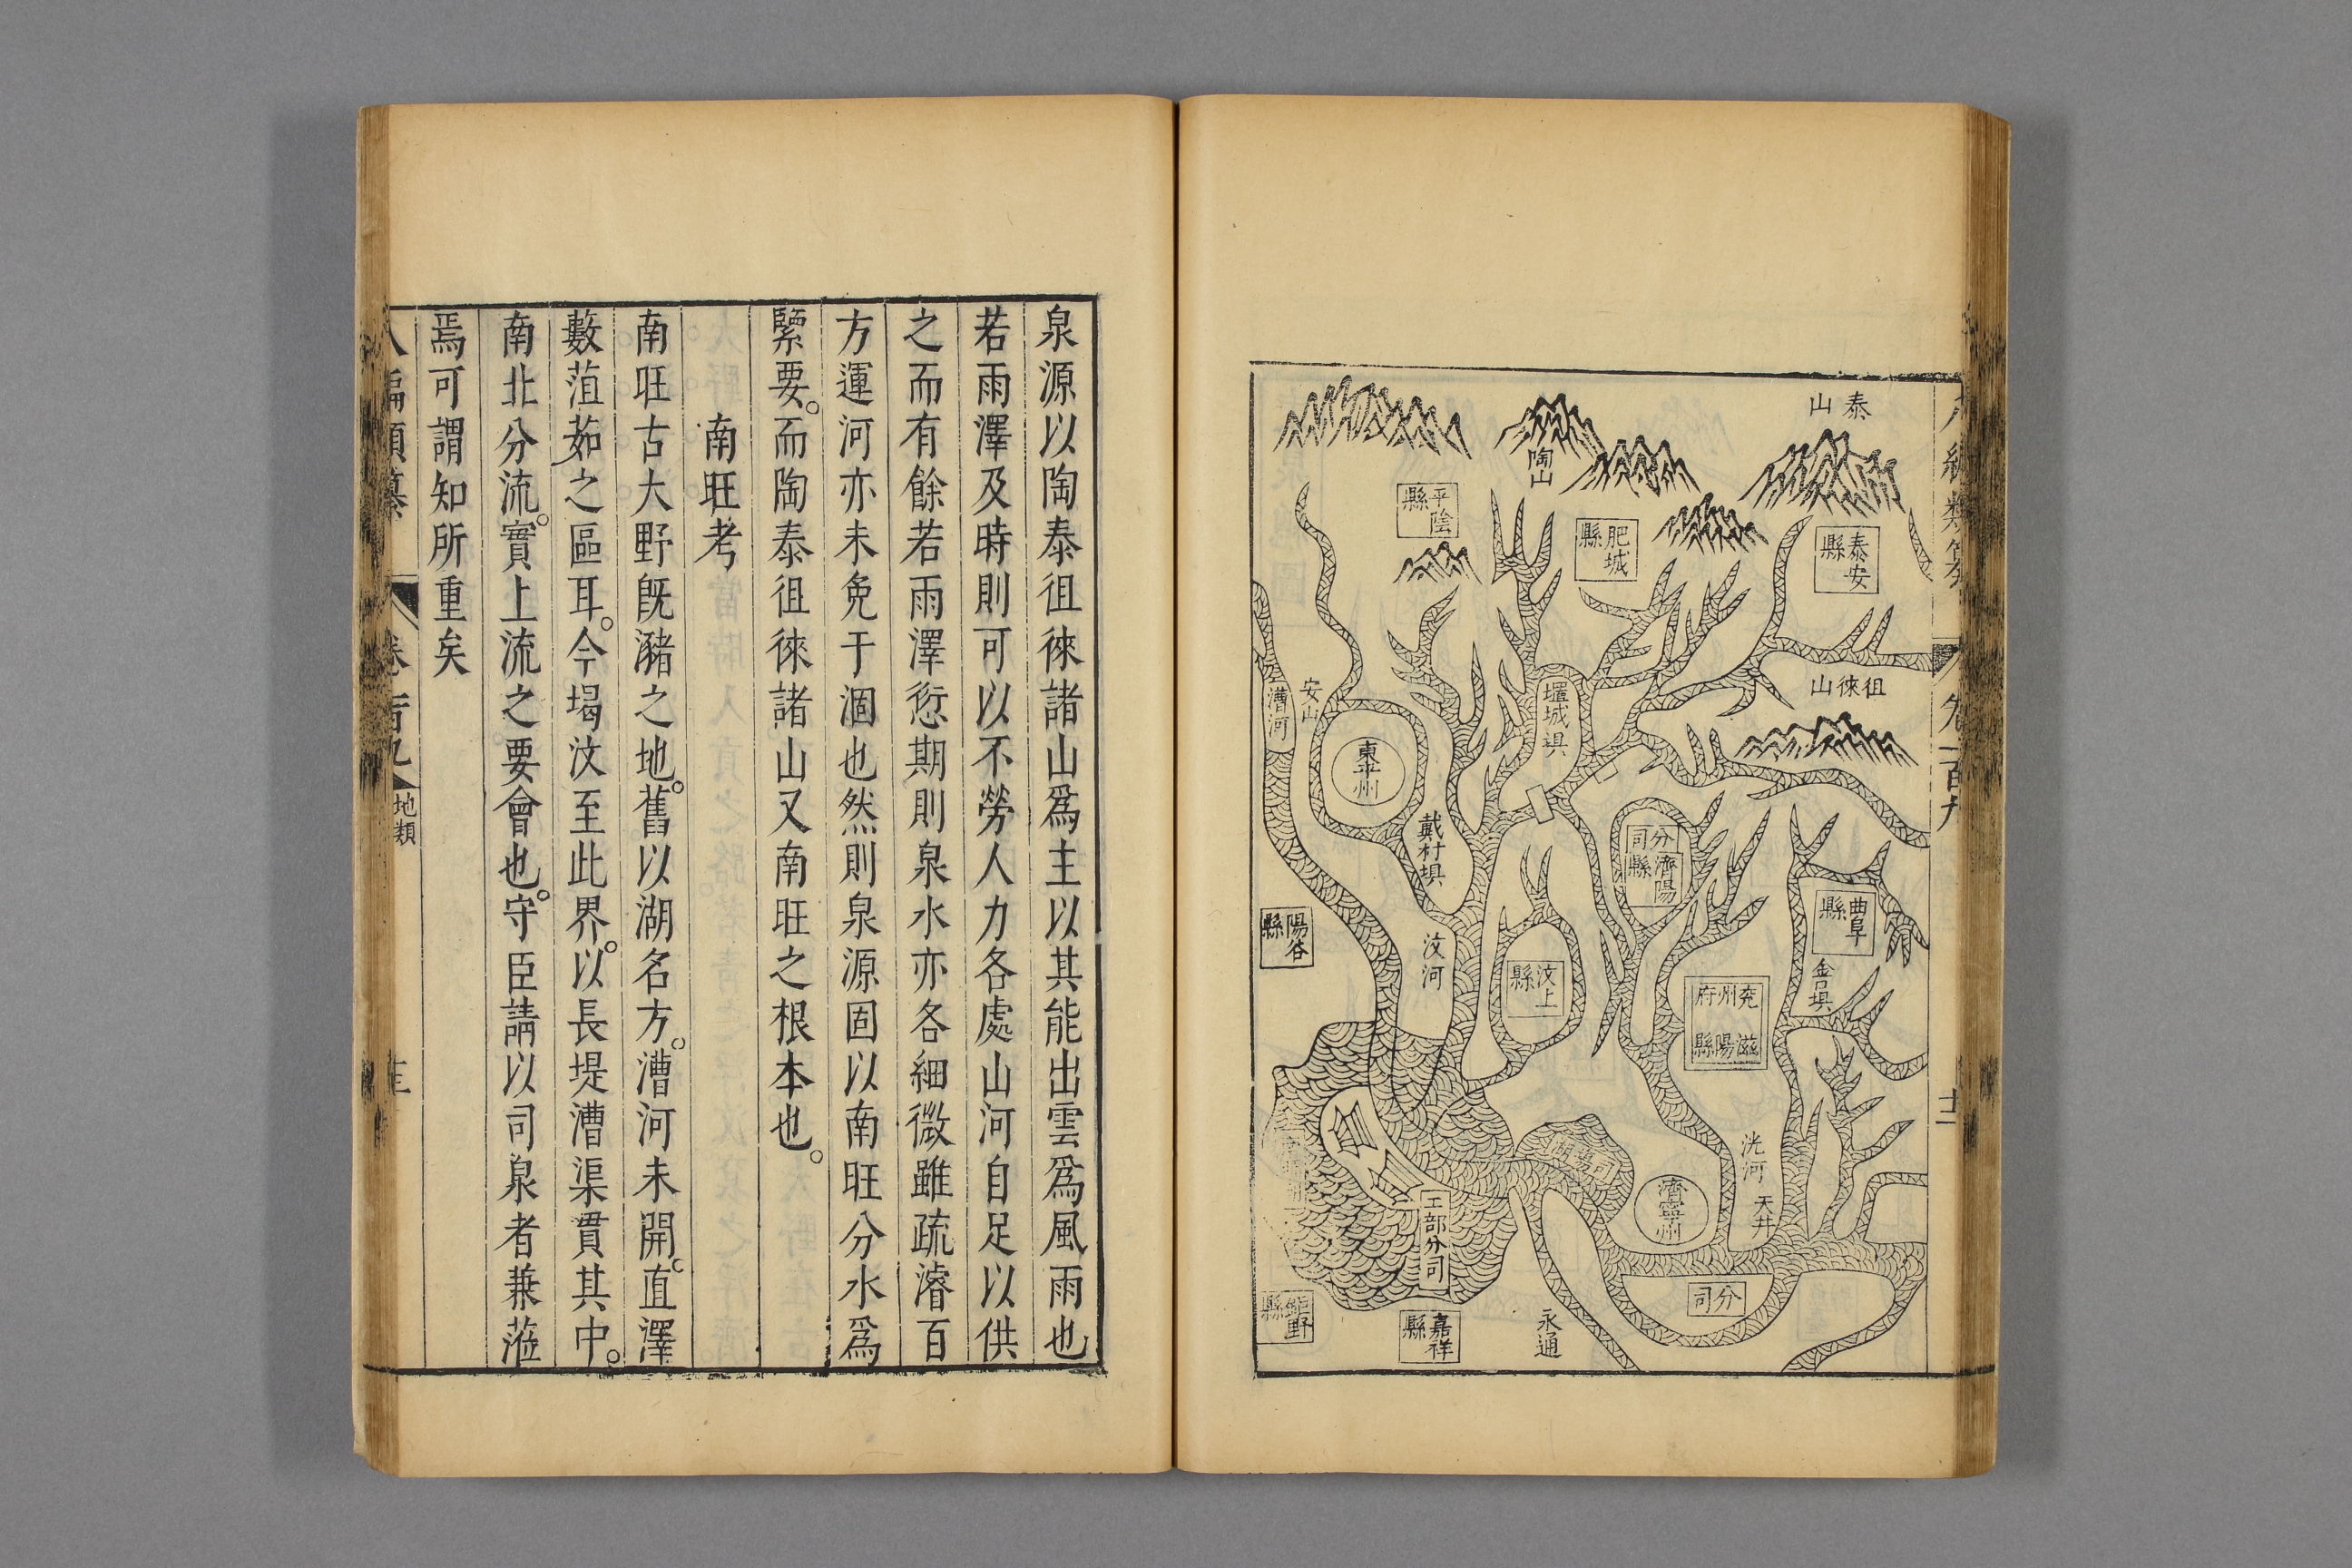 八編類纂
卷一百九
泰山
陶山
平陰縣
肥城縣
泰安縣
徂徠山
安山
漕河
堽城埧
東平州
戴村埧
分司
濟陽縣
曲阜縣
陽谷縣
汶河
汶上縣
金口埧
兗州府
滋陽縣
洸河
天井
濟寧州
工部分司
分司
鉅野縣
嘉祥縣
永通
泉源以陶泰徂徠諸山爲主以其能出雲爲風雨也
若雨澤及時則可以不勞人力各處山河自足以供
之而有餘若雨澤愆期則泉水亦各細微雖疏濬百
方運河亦未免于涸也然則泉源固以南旺分水爲
緊要。而陶泰徂徠諸山又南旺之根本也。
南旺考
南旺古大野旣瀦之地。舊以湖名方。漕河未開。直澤
藪菹茹之區耳。今堨汶至此界。以長堤漕渠貫其中。
南北分流。實上流之要會也。守臣請以司泉者兼涖
焉可謂知所重矣
八編類纂
卷百九
地類